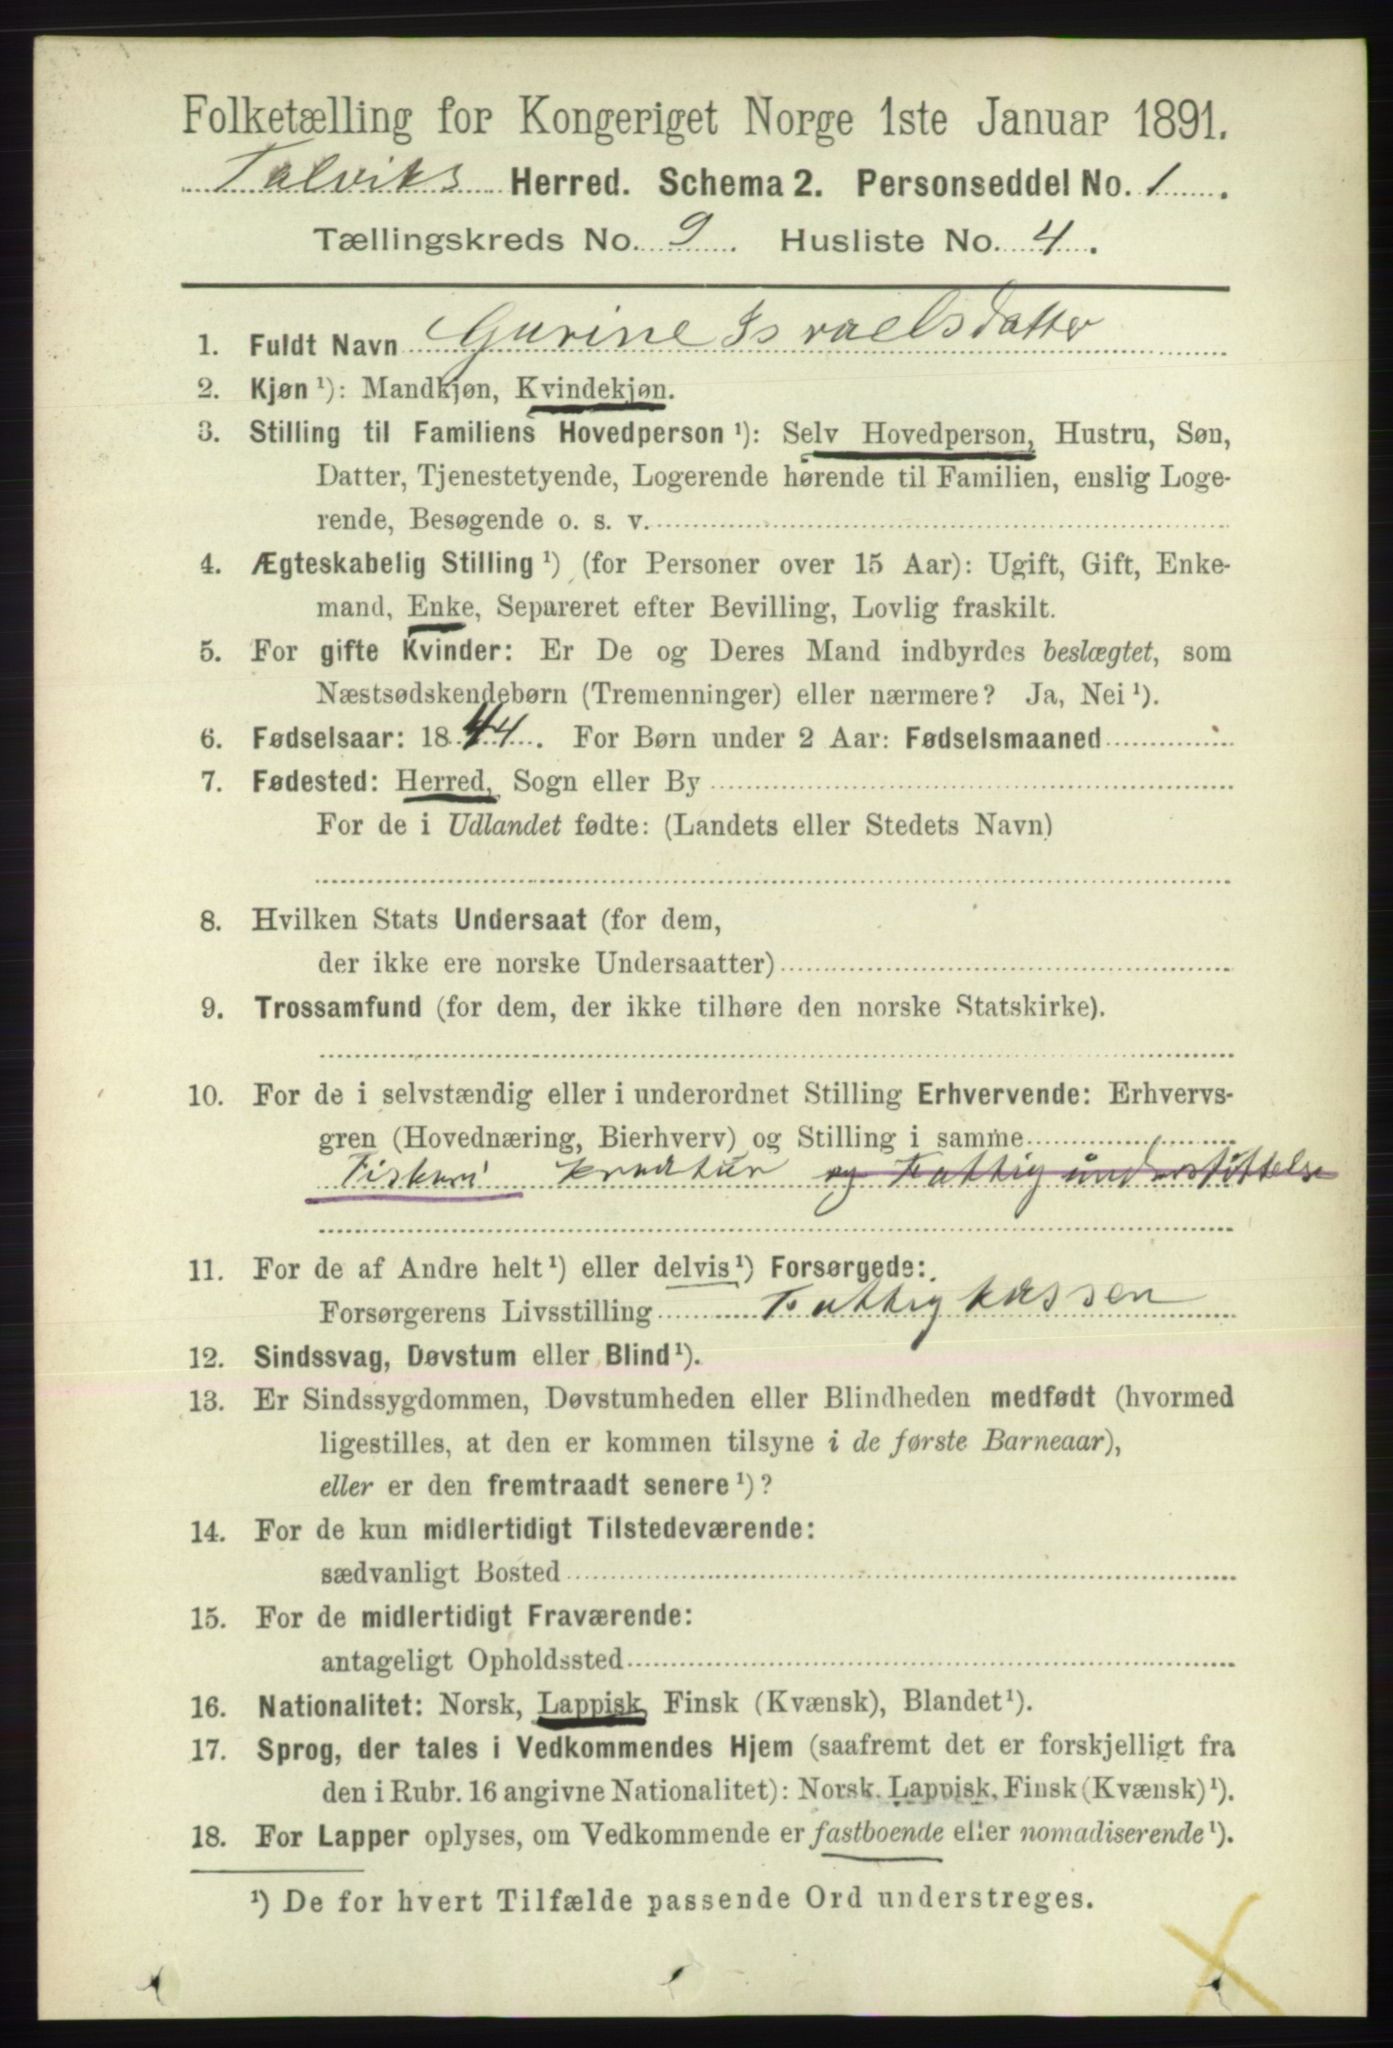 Folketælling for Kongeriget Norge 1ste Januar 1891.
Talviks Herred. Schema 2. Personseddel No. 1.
Tællingskreds No. 9. Husliste No. 4.
1. Fuldt Navn Gurine Israelsdatter
2. Kjøn ¹): Mandkjøn, Kvindekjøn.
3. Stilling til Familiens Hovedperson ¹): Selv Hovedperson, Hustru, Søn,
Datter, Tjenestetyende, Logerende hørende til Familien, enslig Loge-
rende, Besøgende o. s. v.
4. Ægteskabelig Stilling ¹) (for Personer over 15 Aar): Ugift, Gift, Enke-
mand, Enke, Separeret efter Bevilling, Lovlig fraskilt.
5. For gifte Kvinder: Er De og Deres Mand indbyrdes beslægtet, som
Næstsødskendebørn (Tremenninger) eller nærmere? Ja, Nei ¹).
6. Fødselsaar: 1844. For Børn under 2 Aar: Fødselsmaaned
7. Fødested: Herred, Sogn eller By
For de i Udlandet fødte: (Landets eller Stedets Navn)
8. Hvilken Stats Undersaat (for dem,
der ikke ere norske Undersaatter)
9. Trossamfund (for dem, der ikke tilhøre den norske Statskirke).
10. For de i selvstændig eller i underordnet Stilling Erhvervende: Erhvervs-
gren (Hovednæring, Bierhverv) og Stilling i samme
Fiskeri kreatur og Fattigunderstøttelse
11. For de af Andre helt ¹) eller delvis ¹) Forsørgede:
Forsørgerens Livsstilling Fattigkassen
12. Sindssvag, Døvstum eller Blind ¹).
13. Er Sindssygdommen, Døvstumheden eller Blindheden medfødt (hvormed
ligestilles, at den er kommen tilsyne i de første Barneaar),
eller er den fremtraadt senere ¹)?
14. For de kun midlertidigt Tilstedeværende:
sædvanligt Bosted
15. For de midlertidigt Fraværende:
antageligt Opholdssted
16. Nationalitet: Norsk, Lappisk, Finsk (Kvænsk), Blandet ¹).
17. Sprog, der tales i Vedkommendes Hjem (saafremt det er forskjelligt fra
den i Rubr. 16 angivne Nationalitet): Norsk, Lappisk, Finsk (Kvænsk) ¹).
18. For Lapper oplyses, om Vedkommende er fastboende eller nomadiserende ¹).
¹) De for hvert Tilfælde passende Ord understreges.